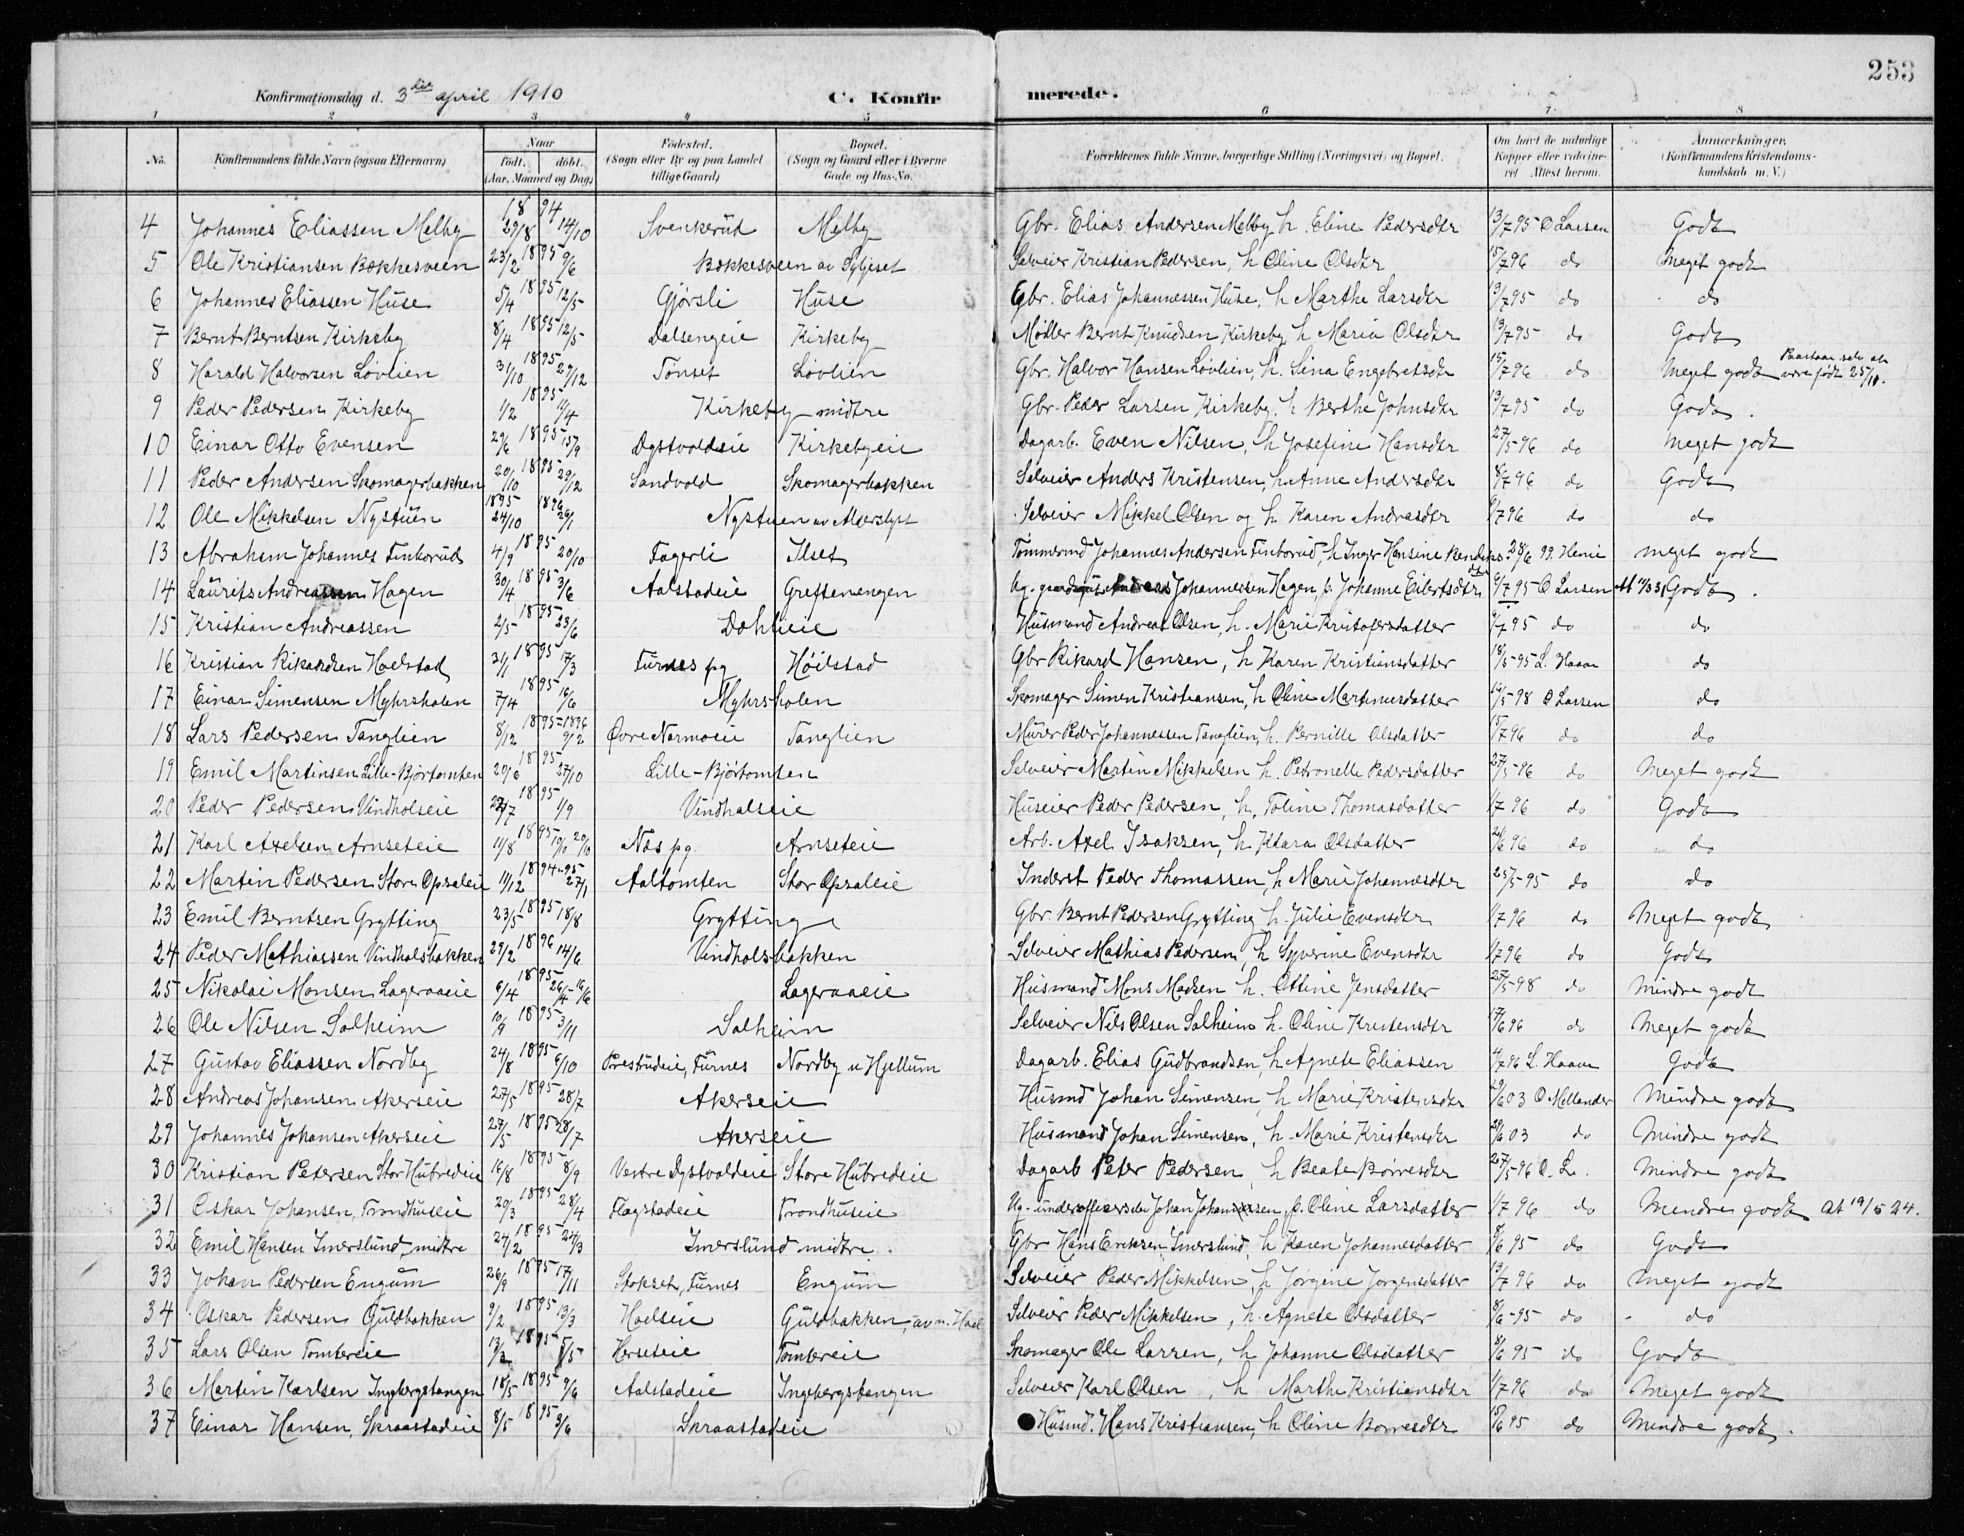 253
Konfirmationsdag d. 3die april 1910 C. Konfirmerede.
1 2 3 4 5 6 7 8
No. Konfirmandens fulde Navn (ogsaa Efternavn) Naar født. døbt. (Aar, Maaned og Dag) Fødested. (Sogn eller By og paa Landet tillige Gaard) Bopæl. (Sogn og Gaard eller i Byerne Gade og Hus-No. Forældrenes fulde Navne, borgerlige Stilling (Næringsvei) og Bopæl. Om havt de naturlige Kopper eller vaccineret Attest herom. Anmerkninger. (Konfirmandens Kristendomskundskab m. V.)
4 Johannes Eliassen Melby 29/8 1894 14/10 Svenkerud Melby Gbr. Elias Andersen Melby h. Eline Pedersdtr 13/7 95 O Larsen Godt
5 Ole Kristiansen Bækkesveen 23/2 1895 9/6 Bækkesveen av Syljeset Selveier Kristian Pedersen, h Oline Olsdtr 15/7 96 do Meget godt
6 Johannes Eliassen Huse 5/4 1895 12/5 Gjørsli Huse Gbr. Elias Johannessen Huse, h Marthe Larsdtr 13/7 95 do do
7 Bernt Berntsen Kirkeby 8/4 1895 12/5 Dalsengeie Kirkeby Møller Bernt Knudsen Kirkeby h Maria Olsdtr 13/7 95 do Godt
8 Harald Halvorsen Løvlien 31/10 1895 29/12 Tønset Løvlien Gbr. Halvor Hansen Løvlien, h. Lina Engebretsdtr 15/7 96 do Meget godt Paastaar selv at være født 25/10.
9 Peder Pedersen Kirkeby 1/2 1895 11/4 Kirkeby midtre Gbr. Peder Larsen Kirkeby, h Berthe Johnsdtr 13/7 95 do Godt.
10 Einar Otto Evensen 29/6 1895 15/9 Dystvoldeie Kirkebyeie Dagarb. Even Nilsen, h Josefine Hansdtr 27/5 96 do Meget godt
11 Peder Andersen Skomagerbakken 20/10 1895 29/12 Sandvold Skomagerbakken Selveier Anders Kristensen, h Anne Andersdtr 8/7 96 do Godt
12 Ole Mikkelsen Nystuen 1895 24/10 1896 26/1 Nystuen av Alverslyst Selveier Mikkel Olsen og h. Karen Andreasdtr 9/7 96 do do
13 Abraham Johannes Finborud 4/9 1895 20/10 Fagerli Ilset Tømmermd Johannes Andersen Finborud, h Inger Hansine Bendiks.dtr 28/6 99. Henie meget godt
14 Laurits Andreassen Hagen 30/4 1895 3/6 Aalstadeie Greftenengen Johannessen Hagen, p. Johanne Eilertsdtr 6/7 95 O Larsen Godt.
15 Kristian Andreassen 2/5 1895 23/6 Dohleie Husmand Andreas Olsen, h. Marie Kristofersdatter 7/7 95 do do
16 Kristian Rikardsen Hoelstad 31/1 1895 17/3 Furnes pg Høilstad Gbr Rikard Hansen, h Karen Kristiansdatter 18/5 95 L. Haave do
17 Einar Simensen Myhrsholen 7/4 1895 16/6 Myhrsholen Skomager Simen Kristiansen, h Oline Martinusdatter 16/5 98 O Larsen do
18 Lars Pedersen Tanglien 8/12 1895 – 1896 9/2 Øvre Narmoeie Tanglien Murer Peder Johannessen Tanglien, h. Pernille Olsdatter 15/7 96 do do
19 Emil Martinsen Lille-Bjørtomten 20/6 1895 27/10 Lille-Bjørtomten Selveier Martin Mikkelsen h. Petronelle Pedersdatter 27/5 96 do Meget godt
20 Peder Pedersen Vindholseie 27/7 1895 1/9 Vindholseie Huseier Peder Pedersen, h. Toline Thomasdatter 1/7 96 do Godt
21 Karl Axelsen Arnseteie 11/8 1895 20/10 Næs pg. Arnseteie Arb. Axel Isaksen, h Klara Olsdatter 24/6 96 do do
22 Martin Pedersen Store Opsaleie 11/12 1894-95 27/1 Aaltomten Stor Opsaleie Inderst Peder Thomassen, h Marie Johannesdtr 25/5 95 do do
23 Emil Berntsen Grytting 23/5 1895 18/8 Grytting Gbr Bernt Pedersen Grytting h. Julie Evensdtr 1/7 96 do Meget godt
24 Peder Mathiassen Vindholsbakken 29/2 1896 14/6 Vindholsbakken Selveier Mathias Pedersen, h Syverine Evensdtr 1/7 96 do Godt
25 Nikolai Monsen Lageraaeie 6/4 1895 26/4-16/6 Lageraaeie Husmand Mons Madsen h. Ottine Jensdatter 27/5 98 do Mindre godt
26 Ole Nilsen Solheim 10/9 1895 3/11 Solheim Selveier Nils Olsen Solheim h. Oline Kristensdtr 17/6 96 do Meget godt
27 Gustav Eliassen Nordby 24/8 1895 6/10 Prestrudeie, Furnes Nordby u Hjellum Dagarb. Elias Gudbrandsen, h Agnete Eliassen 4/7 96 L. Haave Godt
28 Andreas Johansen Akerseie 27/5 1895 28/7 Akerseie Husmd Johan Simensen, h Marie Kristensdtr 29/6 03 O Mellander Mindre godt
29 Johannes Johansen Akerseie 27/5 1895 28/7 Akerseie Husmand Johan Simensen, h. Marie Kristensdtr 29/6 03 do Mindre godt
30 Kristian Petersen Stor Hubredeie 16/8 1895 8/9 Vestre Dystvoldeie Store Hubredeie Dagarb Peter Pedersen, h Beate Børresdtr 27/5 96 O. L. Mindre godt
31 Oskar Johansen, Trondhuseie 20/3 1895 28/4 Flagstadeie Trondhuseie Ug. underofficerselev Johan Johannessen, p. Oline Larsdatter 1/7 96 do Mindre godt At 19/5 24.
32 Emil Hansen Imerslund midtre 24/2 1895 24/3 Imerslund midtre. Gbr Hans Eriksen Imerslund, h Karen Johannesdatter 8/6 95 do Godt
33 Johan Pedersen Engum 26/9 1895 17/11 Stokset, Furnes Engum Selveier Peder Mikkelsen, h Jørgine Jørgensdatter 13/7 96 do Meget godt
34 Oskar Pedersen Guldbakken 9/2 1895 13/3 Hoelseie Guldbakken, av n. Hoel Selveier Peder Mikkelsen, h. Agnete Olsdatter 8/6-95 do do
35 Lars Olsen Tomtereie 13/3 1895 5/5 Herseteie Tomtereie Skomager Ole Larsen, h Johanne Olsdatter 8/6 95 do Godt
36 Martin Karlsen Ingebergstangen 18/5 1895 9/6 Aalstadeie Ingebergstangen Selveier Karl Olsen, h Marthe Kristiansdtr 1/7 96 do Meget godt
37 Einar Hansen, Skraastadeie 8/5 1895 3/6 Skraastadeie Husmd. Hans Kristiansen, h Oline Børresdtr 15/6 95 do Mindre godt.